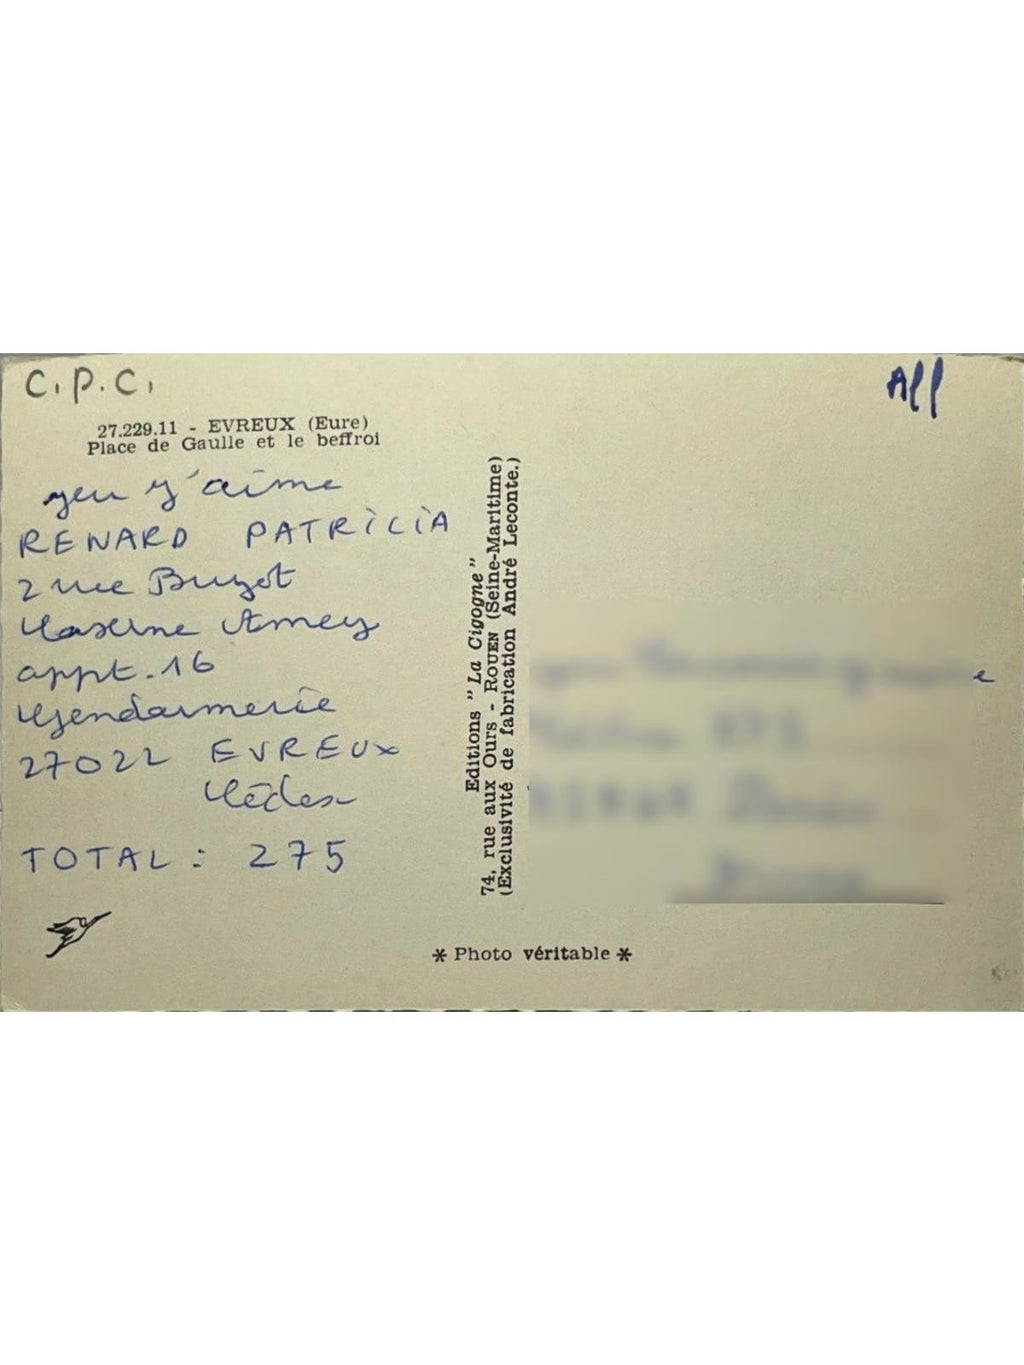 C.P.C.
All
27.229.11 - EVREUX (Eure)
Place de Gaulle et le beffroi
jeu j'aime
RENARD PATRICIA
2 rue Buzot
Caserne Amey
appt. 16
Gendarmerie
27022 EVREUX
Cédex
TOTAL : 275
Editions " La Cigogne "
74, rue aux Ours - ROUEN (Seine-Maritime)
(Exclusivité de fabrication André Leconte.)
* Photo véritable *